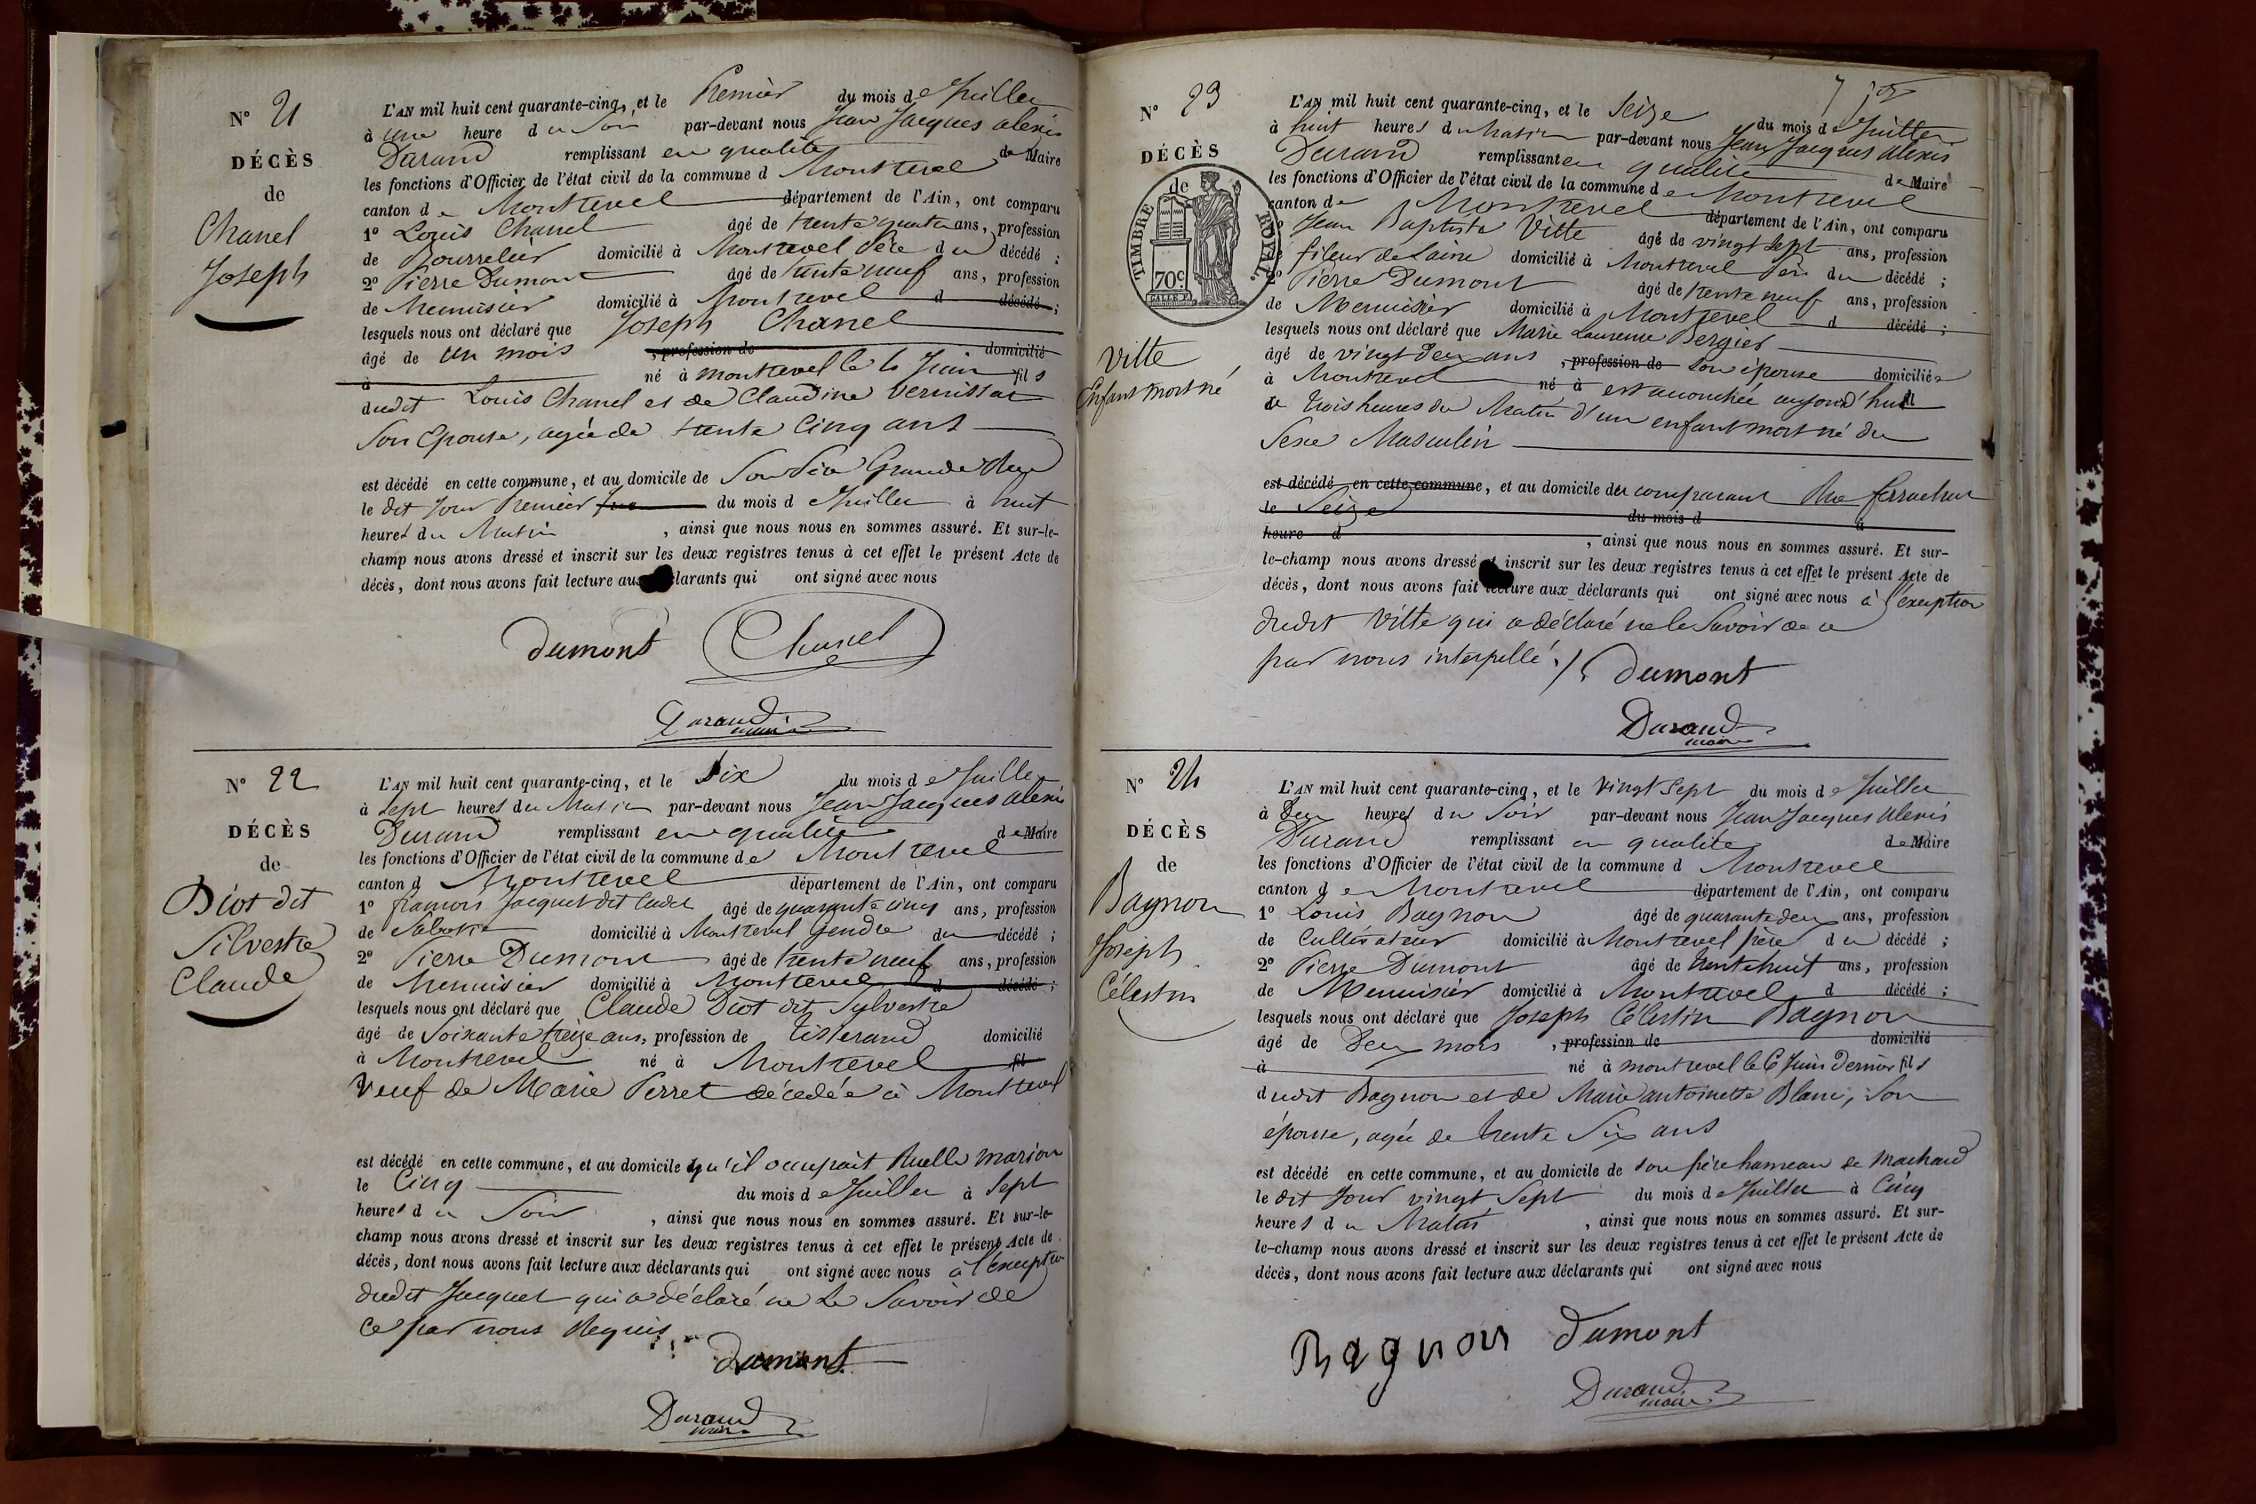 N° 21
DÉCÈS
de
Chanel
Joseph
L'AN mil huit cent quarante-cinq, et le Premier du mois de Juillet
à une heure du Soir par-devant nous Jean Jacques alexis
Durand remplissant en qualité de Maire
les fonctions d'Officier de l'état civil de la commune d Montrevel
canton de Montrevel département de l'Ain, ont comparu
1° Louis Chanel âgé de trente quatre ans, profession
de Bourrelier domicilié à Montrevel Père du décédé ;
2° Pierre Dumont âgé de trente neuf ans, profession
de Menuisier domicilié à Montrevel d décédé ;
lesquels nous ont déclaré que Joseph Chanel
âgé de un mois , profession de domicilié
à né à montrevel le 1o Juin fils
dudit Louis Chanel et de Claudine Vernissat
Son Epouse, agée de trente Cinq ans
est décédé en cette commune, et au domicile de Son Père Grande Rue
le dit Jour Premier du mois de Juillet à huit
heures du Matin , ainsi que nous nous en sommes assuré. Et sur-le-
champ nous avons dressé et inscrit sur les deux registres tenus à cet effet le présent Acte de
décès, dont nous avons fait lecture aux déclarants qui ont signé avec nous
dumont Chanel
Durand
maire
N° 22
DÉCÈS
de
Diot dit
Silvestre
Claude
L'AN mil huit cent quarante-cinq, et le Six du mois de Juillet
à Sept heures du Matin par-devant nous Jean Jacques alexis
Durand remplissant en qualité de Maire
les fonctions d'Officier de l'état civil de la commune de Montrevel
canton d Montrevel département de l'Ain, ont comparu
1° françois Jacquet dit Cadet âgé de quarante cinq ans, profession
de Sabotier domicilié à Montrevel Gendre du décédé ;
2° Pierre Dumont âgé de trente neuf ans, profession
de Menuisier domicilié à Montrevel d décédé ;
lesquels nous ont déclaré que Claude Diot dit Sylvestre
âgé de Soixante treize ans, profession de tisserand domicilié
à Montrevel né à Montrevel fil
Veuf de Marie Perret décédée à Montrevel
est décédé en cette commune, et au domicile qu'il occupait Ruelle Marion
le Cinq du mois de Juillet à Sept
heures du Soir , ainsi que nous nous en sommes assuré. Et sur-le-
champ nous avons dressé et inscrit sur les deux registres tenus à cet effet le présent Acte de
décès, dont nous avons fait lecture aux déclarants qui ont signé avec nous à l'exception
dudit Jacquet qui a déclaré ne le Savoir de
ce par nous Requis
Dumont
Durand
maire
N° 23
DÉCÈS
de
TIMBRE ROYAL
70c
Vitte
Enfant mort né
L'AN mil huit cent quarante-cinq, et le Seize du mois de Juillet
à huit heures du Matin par-devant nous Jean Jacques alexis
Durand remplissant en qualité de Maire
les fonctions d'Officier de l'état civil de la commune de Montrevel
canton de Montrevel département de l'Ain, ont comparu
Jean Baptiste Vitte âgé de vingt Sept ans, profession
fileur de Laine domicilié à Montrevel Père du décédé ;
Pierre Dumont âgé de trente neuf ans, profession
de Menuisier domicilié à Montrevel d décédé ;
lesquels nous ont déclaré que Marie Laurence Bergier
âgé de vingt Deux ans , profession de Son épouse domiciliée
à Montrevel né à est accouchée aujourd'hui fil
à trois heures du Matin d'un enfant mort né du
Sexe Masculin
est décédé en cette commune, et au domicile du comparant Rue ferrachat
le Seize du mois d à
heure d , ainsi que nous nous en sommes assuré. Et sur-
le-champ nous avons dressé et inscrit sur les deux registres tenus à cet effet le présent Acte de
décès, dont nous avons fait lecture aux déclarants qui ont signé avec nous à l'exception
dudit Vitte qui a déclaré ne le Savoir de ce
par nous interpellé. dumont
Durand
maire
N° 24
DÉCÈS
de
Bagnon
Joseph
Célestin
L'AN mil huit cent quarante-cinq, et le vingt Sept du mois de Juillet
à Deux heures du Soir par-devant nous Jean Jacques Alexis
Durand remplissant en qualité de Maire
les fonctions d'Officier de l'état civil de la commune d Montrevel
canton de Montrevel département de l'Ain, ont comparu
1° Louis Bagnon âgé de quarante deux ans, profession
de Cultivateur domicilié à Montrevel père du décédé ;
2° Pierre Dumont âgé de trente huit ans, profession
de Menuisier domicilié à Montrevel d décédé ;
lesquels nous ont déclaré que Joseph Célestin Bagnon
âgé de Deux mois , profession de domicilié
à né à montrevel le 6 Juin Dernier fils
dudit Bagnon et de Marie antoinette Blanc, Son
épouse, agée de trente Six ans
est décédé en cette commune, et au domicile de son père hameau de Machard
le dit Jour vingt Sept du mois de Juillet à Cinq
heures du Matin , ainsi que nous nous en sommes assuré. Et sur-
le-champ nous avons dressé et inscrit sur les deux registres tenus à cet effet le présent Acte de
décès, dont nous avons fait lecture aux déclarants qui ont signé avec nous
Bagnon dumont
Durand
maire